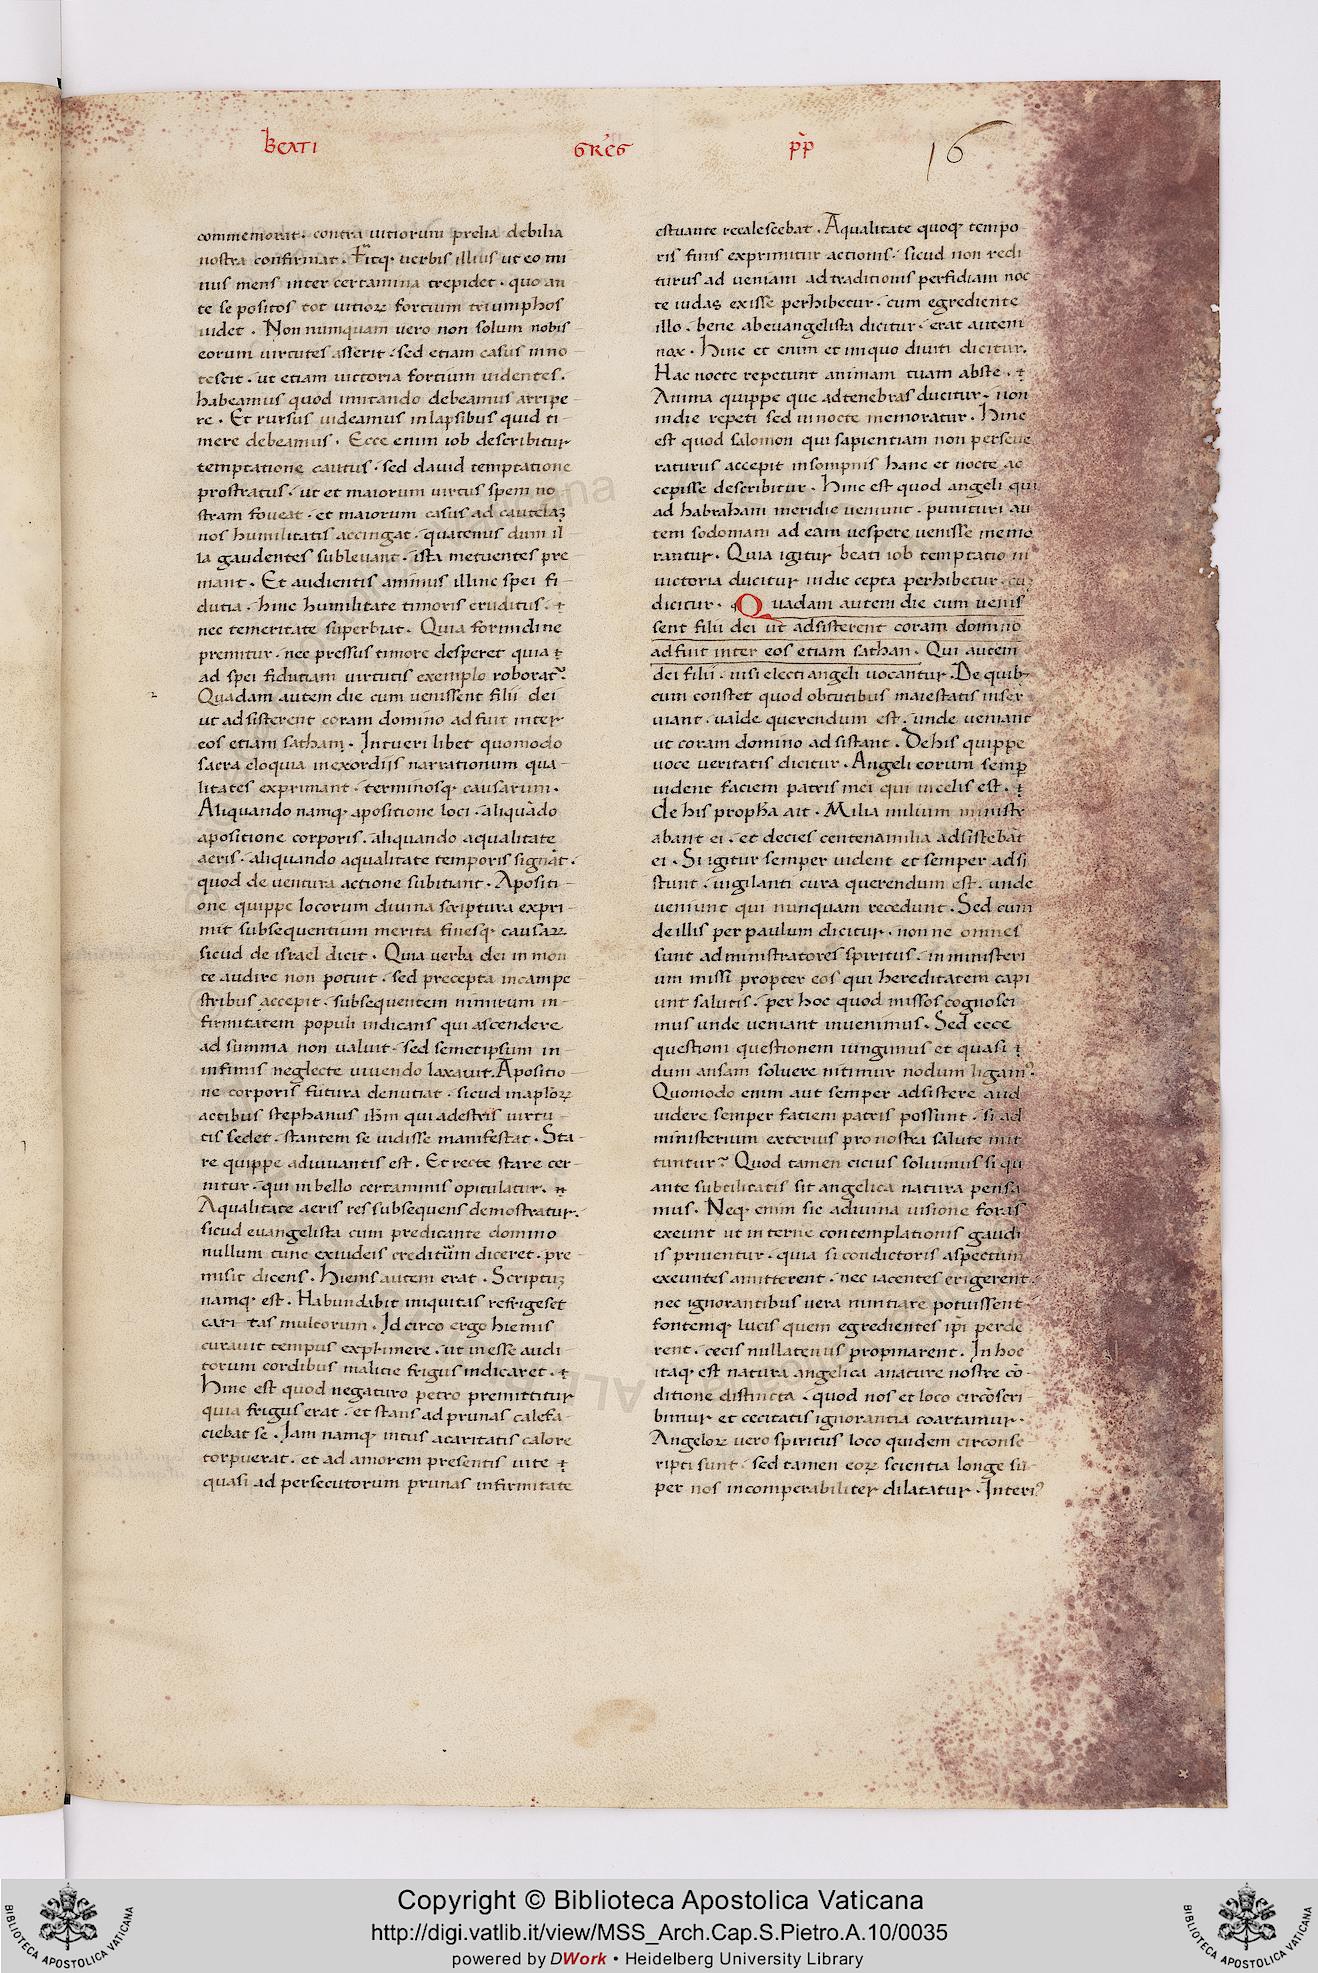 BEATI GREG PP 16
commemorat . contra uitiorum prelia debilia
nostra confirmat . Fitq; uerbis illius ut eo mi
nus mens inter certamina trepidet . quo an
te se positos tot uitioꝝ fortium triumphos
uidet . Non numquam uero non solum nobis
eorum uirtutes asserit . sed etiam casus inno
tescit . ut etiam uictoria fortium uidentes .
habeamus quod imitando debeamus arripe
re . Et rursus uideamus inlapsibus quid ti
mere debeamus . Ecce enim iob describitur
temptatione cautus . sed dauid temptatione
prostratus . ut et maiorum uirtus spem no
stram foueat . et maiorum casus ad cautelaȝ
nos humilitatis accingat . quatenus dum il
la gaudentes subleuant . ista metuentes pre
mant . Et audientis animus illinc spei fi
dutia . hinc humilitate timoris eruditus . ⁊
nec temeritate superbiat . Quia formidine
premitur . nec pressus timore desperet quia ⁊
ad spei fidutiam uirtutis exemplo roborat᷑ .
Quadam autem die cum uenissent filii dei
ut adsisterent coram domino adfuit inter
eos etiam satham . Intueri libet quomodo
sacra eloquia inexordiis narrationum qua
litates exprimant . terminosq; causarum .
Aliquando namq; apositione loci . aliquādo
apositione corporis . aliquando aqualitate
aeris . aliquando aqualitate temporis signāt .
quod de uentura actione subitiant . Apositi
one quippe locorum diuina scriptura expri
mit subsequentium merita finesq; causaꝝ
sicud de israel dicit . Quia uerba dei in mon
te audire non potuit . sed precepta incampe
stribus accepit . subsequentem nimirum in
firmitatem populi indicans qui ascendere
ad summa non ualuit . sed semetipsum in
infimis neglecte uiuendo laxauit . Apositio
ne corporis futura denutiat . sicud inaplōꝝ
actibus stephanus ihm qui adestris uirtu
tis sedet . stantem se uidisse manifestat . Sta
re quippe adiuuantis est . Et recte stare cer
nitur . qui inbello certaminis opitulatur .
Aqualitate aeris res subsequens demostratur .
sicud euangelista cum predicante domino
nullum tunc exiudeis creditūm diceret . pre
misit dicens . hiems autem erat . Scriptuȝ
namq; est . Habundabit iniquitas refrigeset
cari tas multorum . Id circo ergo hiemis
curauit tempus exphimere . ut inesse audi
torum cordibus malitie frigus indicaret . ⁊
hinc est quod negaturo petro premittitur
quia frigus erat . et stans ad prunas calefa
ciebat se . Iam namq; intus acaritatis calore
torpuerat . et ad amorem presentis uite ⁊
quasi ad persecutorum prunas infirmitate
estuante recalescebat . Aqualitate quoq; tempo
ris finis exprimitur actionis . sicud non redi
turus ad ueniam adtraditionis perfidiam noc
te iudas exisse perhibetur . cum egrediente
illo . bene abeuangelista dicitur . erat autem
nox . hinc et enim et iniquo diuiti dicitur .
Hac nocte repetunt animam tuam abste . ⁊
Anima quippe que adtenebras ducitur . non
indie repeti sed innocte memoratur . hinc
est quod salomon qui sapientiam non perseue
raturus accepit insompnis hanc et nocte ac
cepisse describitur . hinc est quod angeli qui
ad habraham meridie ueniunt . punituri au
tem sodomam ad eam uespere uenisse memo
rantur . Quia igitur beati iob temptatio in
uictoria ducitur indie cepta perhibetur . cū
dicitur . Quadam autem die cum uenis
sent filii dei ut adsisterent coram domino
adfuit inter eos etiam sathan . Qui autem
dei filii . nisi electi angeli uocantur . De quibȝ
cum constet quod obtutibus maiestatis inser
uiant . ualde querendum est . unde ueniant
ut coram domino adsistant . Dehis quippe
uoce ueritatis dicitur . Angeli eorum semp
uident faciem patris mei qui incelis est . ⁊
de his propha ait . Milia milium ministr
abant ei . et decies centenamilia adsistebāt
ei . Si igitur semper uident et semper adsi
stunt . uigilanti cura querendum est . unde
ueniunt qui nunquam recedunt . Sed cum
deillis per paulum dicitur . non ne omnes
sunt administratores spiritus . in ministeri
um missi propter eos qui hereditatem capi
unt salutis . per hoc quod missos cognosci
mus unde ueniant inuenimus . Sed ecce
questioni questionem iungimus et quasi ⁊
dum ansam soluere nitimur nodum ligam᷒ .
Quomodo enim aut semper adsistere aud
uidere semper faciem patris possunt . si ad
ministerium exterius pro nostra salute mit
tuntur? Quod tamen cicius soluimus si qu
ante subtilitatis sit angelica natura pensa
mus . Neq; enim sic adiuina uisione foras
exeunt ut interne contemplationis gaudi
is priuentur . quia si condictoris aspectum
exeuntes amitterent . nec iacentes erigerent .
nec ignorantibus uera nuntiare potuissent .
fontemq; lucis quem egredientes ip̄i perde
rent . cecis nullatenus propinarent . In hoc
itaq; est natura angelica anature nostre cō
ditione distincta . quod nos et loco circōscri
bimur et cecitatis ignorantia coartamur .
Angeloꝝ uero spiritus loco quidem circonsc
ripti sunt . sed tamen eoꝝ scientia longe sū
per nos incomperabiliter dilatatur . Interi᷒
Copyright © Biblioteca Apostolica Vaticana
http://digi.vatlib.it/view/MSS_Arch.Cap.S.Pietro.A.10/0035
powered by DWork • Heidelberg University Library
BIBLIOTECA APOSTOLICA VATICANA
BIBLIOTECA APOSTOLICA VATICANA